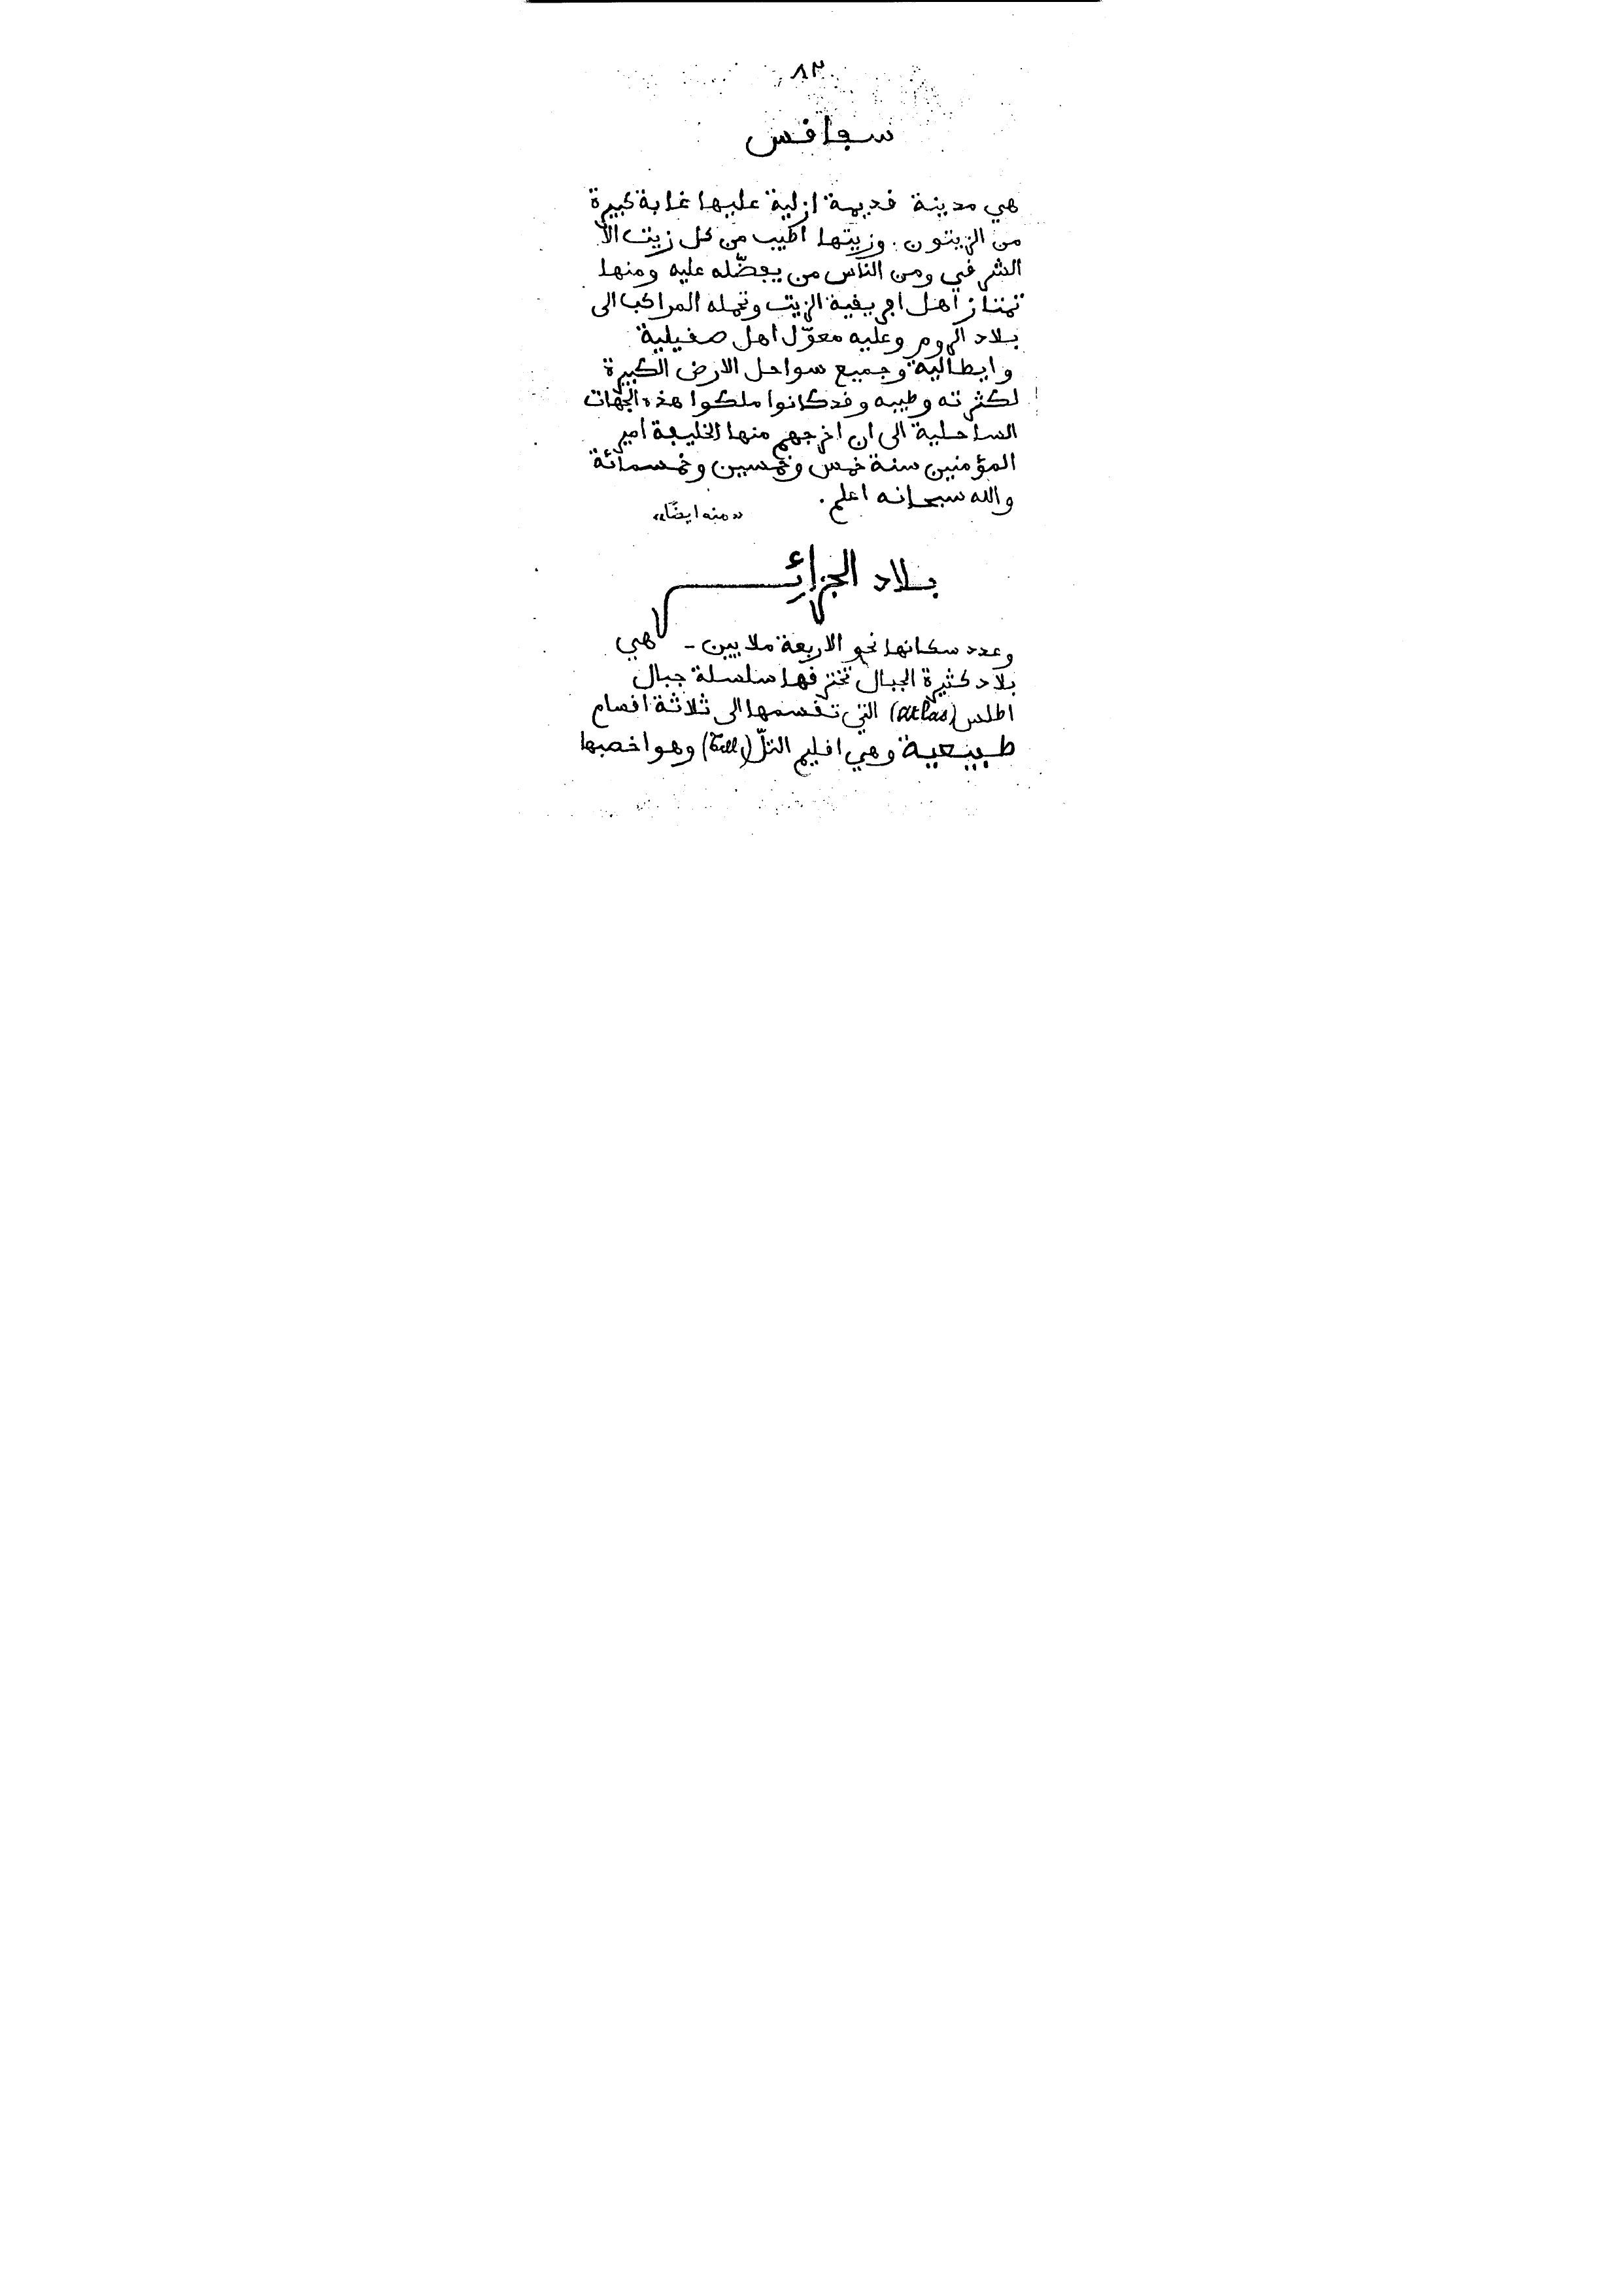 ٨٢
سفاقس
هي مدينة قديمة ازلية عليها غابة كبيرة
من الزيتون. وزيتها اطيب من كل زيت الا
الشرقي ومن الناس من يفضّله عليه ومنها
تمتاز اهل افريقية الزيت وتحمله المراكب الى
بلاد الروم وعليه معوّل اهل صقيلية
وايطالية وجميع سواحل الارض الكبيرة
لكثرته وطيبه وقد كانوا ملكوا هذه الجهات
الساحلية الى ان اخرجهم منها الخليفة امير
المؤمنين سنة خمس وخمسين وخمسمائة
والله سبحانه اعلم.
«منه ايضًا»
بلاد الجزائر
وعدد سكانها نحو الاربعة ملايين - هي
بلاد كثيرة الجبال تخترقها سلسلة جبال
اطلس (Atlas) التي تقسمها الى ثلاثة اقسام
طبيعية وهي اقليم التلّ (Tell) وهو اخصبها